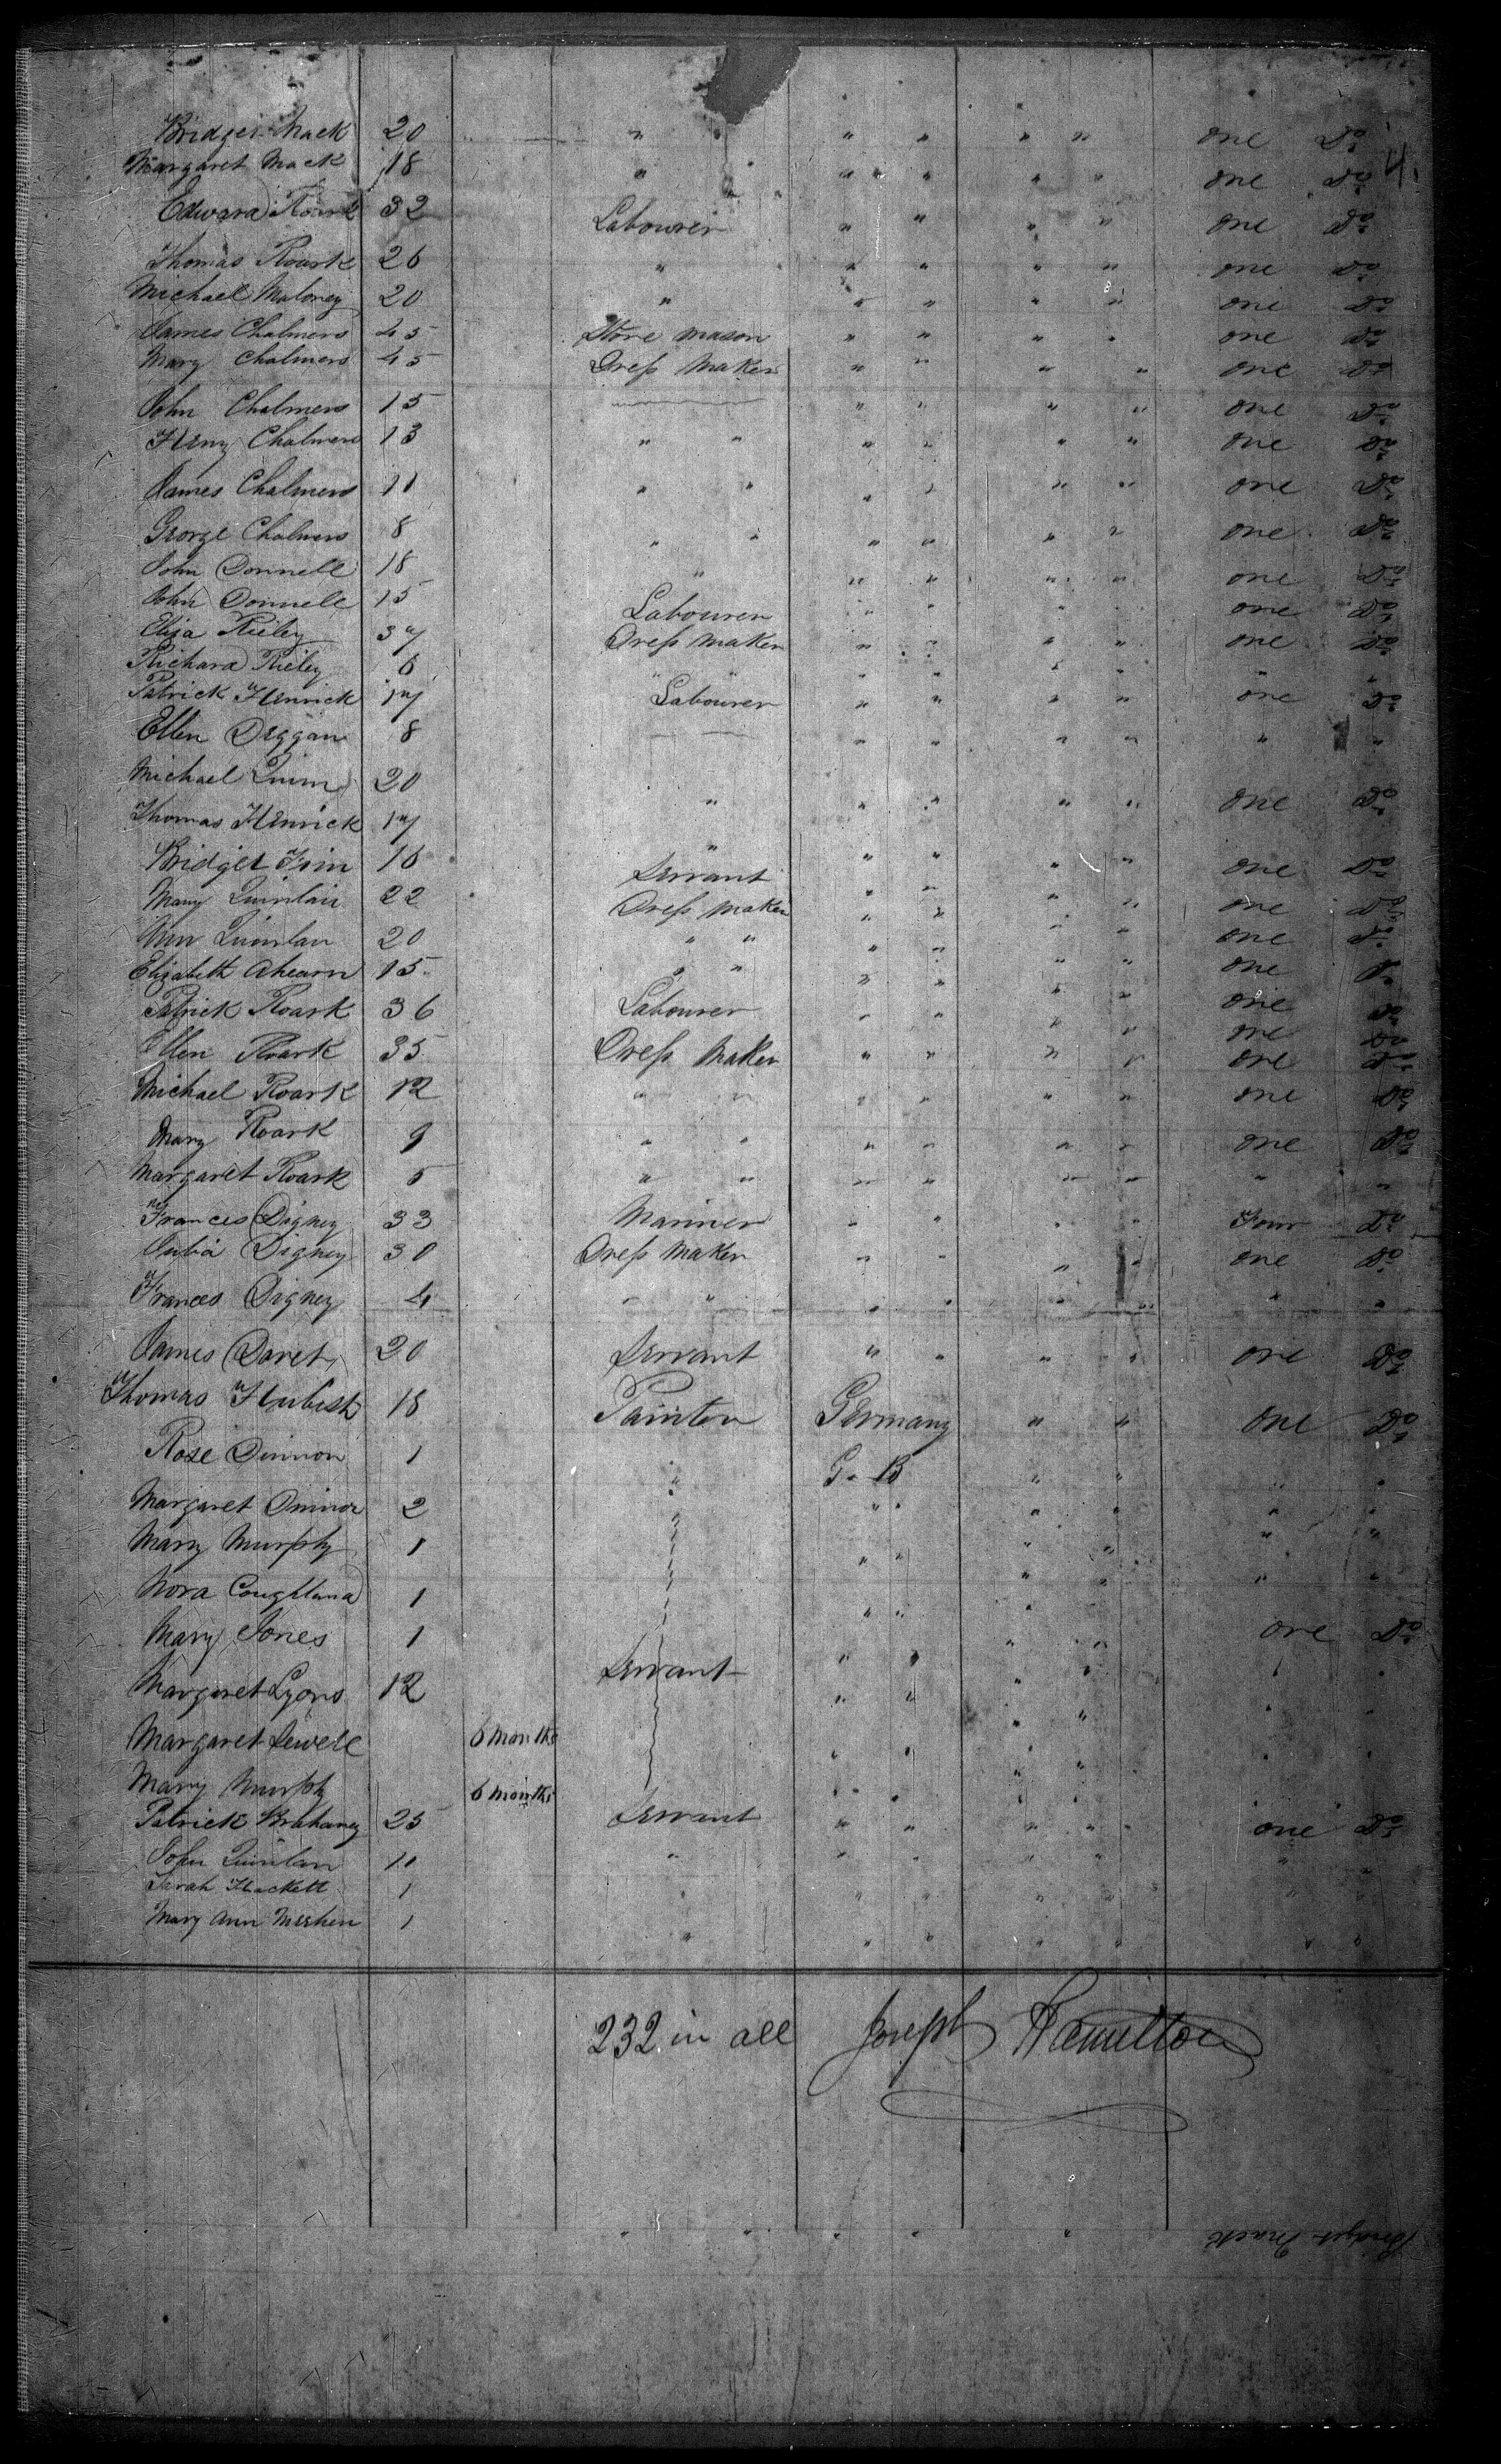 4.
Bridget Mack 20 " " " " " one Do
Margaret Mack 18 " " " " " one Do
Edward Roark 32 Labourer " " " " one Do
Thomas Roark 26 " " " " " one Do
Michael Maloney 20 " " " " " one Do
James Chalmers 45 Stone mason " " " " one Do
Mary Chalmers 45 Dress Maker " " " " one Do
John Chalmers 15 " " " " one Do
Heny Chalmers 13 " " " " " " one Do
James Chalmers 11 " " " " " " one Do
George Chalmers 8 " " " " " " one Do
John Donnell 18 " " " " " one Do
John Donnell 15 Labourer " " " " one Do
Eliza Rieley 37 Dress Maker " " " " one Do
Richard Rieley 6 " " " " " " " "
Patrick Henrick 17 Labourer " " " " one Do
Ellen Deggan 8 " " " " " "
Michael Quinn 20 " " " " " one Do
Thomas Henrick 17 "
Bridget Finn 16 Servant " " " " one Do
Mary Quinlan 22 Dress Maker " " " " one Do
Ann Quinlan 20 " " " " " " one Do
Elizabeth Ahearn 15 " " " " " " one Do
Patrick Roark 36 Labourer " " " " one Do
one Do
Ellen Roark 35 Dress Maker " " " " one Do
Michael Roark 12 " " " " " " one Do
Mary Roark 9 " " " " " " one Do
Margaret Roark 5 " " " " " " " "
Frances Digney 33 Mariner " " " " Four Do
Julia Digney 30 Dress Maker " " " " one Do
Frances Digney 4 " " " " " " " "
James Daret 20 Servant " " " " one Do
Thomas Hubish 18 Painter Germany " " one Do
Rose Dinnon 1 " G. B " " " "
Margaret 2 " " " " " " "
Mary Murphy 1 " " " " " "
Nora 1 " " " " " "
Mary Jones 1 " " one Do
Margaret Lyons 12 Servant " " " " " "
Margaret Sewell 6 months " " " " " "
Mary Murphy 6 months " " " " " "
Patrick 25 Servant " " " " one Do
John Quinlan 10 " " " " " " "
Sarah Hackett 1 " " " " " " "
Mary Ann Meehen 1 " " " " " " "
232 in all Joseph Hamilton
Bridget Mack " " " " "